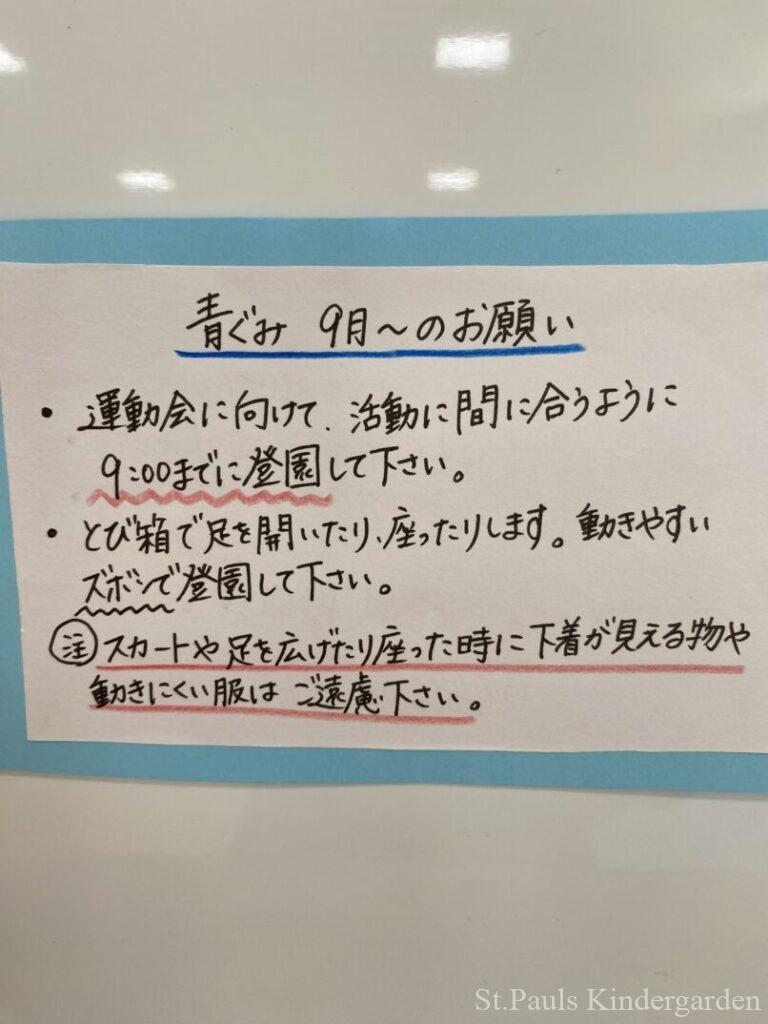 青ぐみ 9月～のお願い
・ 運動会に向けて、活動に間に合うように
9:00までに登園して下さい。
・ とび箱で足を開いたり、座ったりします。動きやすい
ズボンで登園して下さい。
㊟ スカートや足を広げたり座った時に下着が見える物や
動きにくい服はご遠慮下さい。
St.Pauls Kindergarden